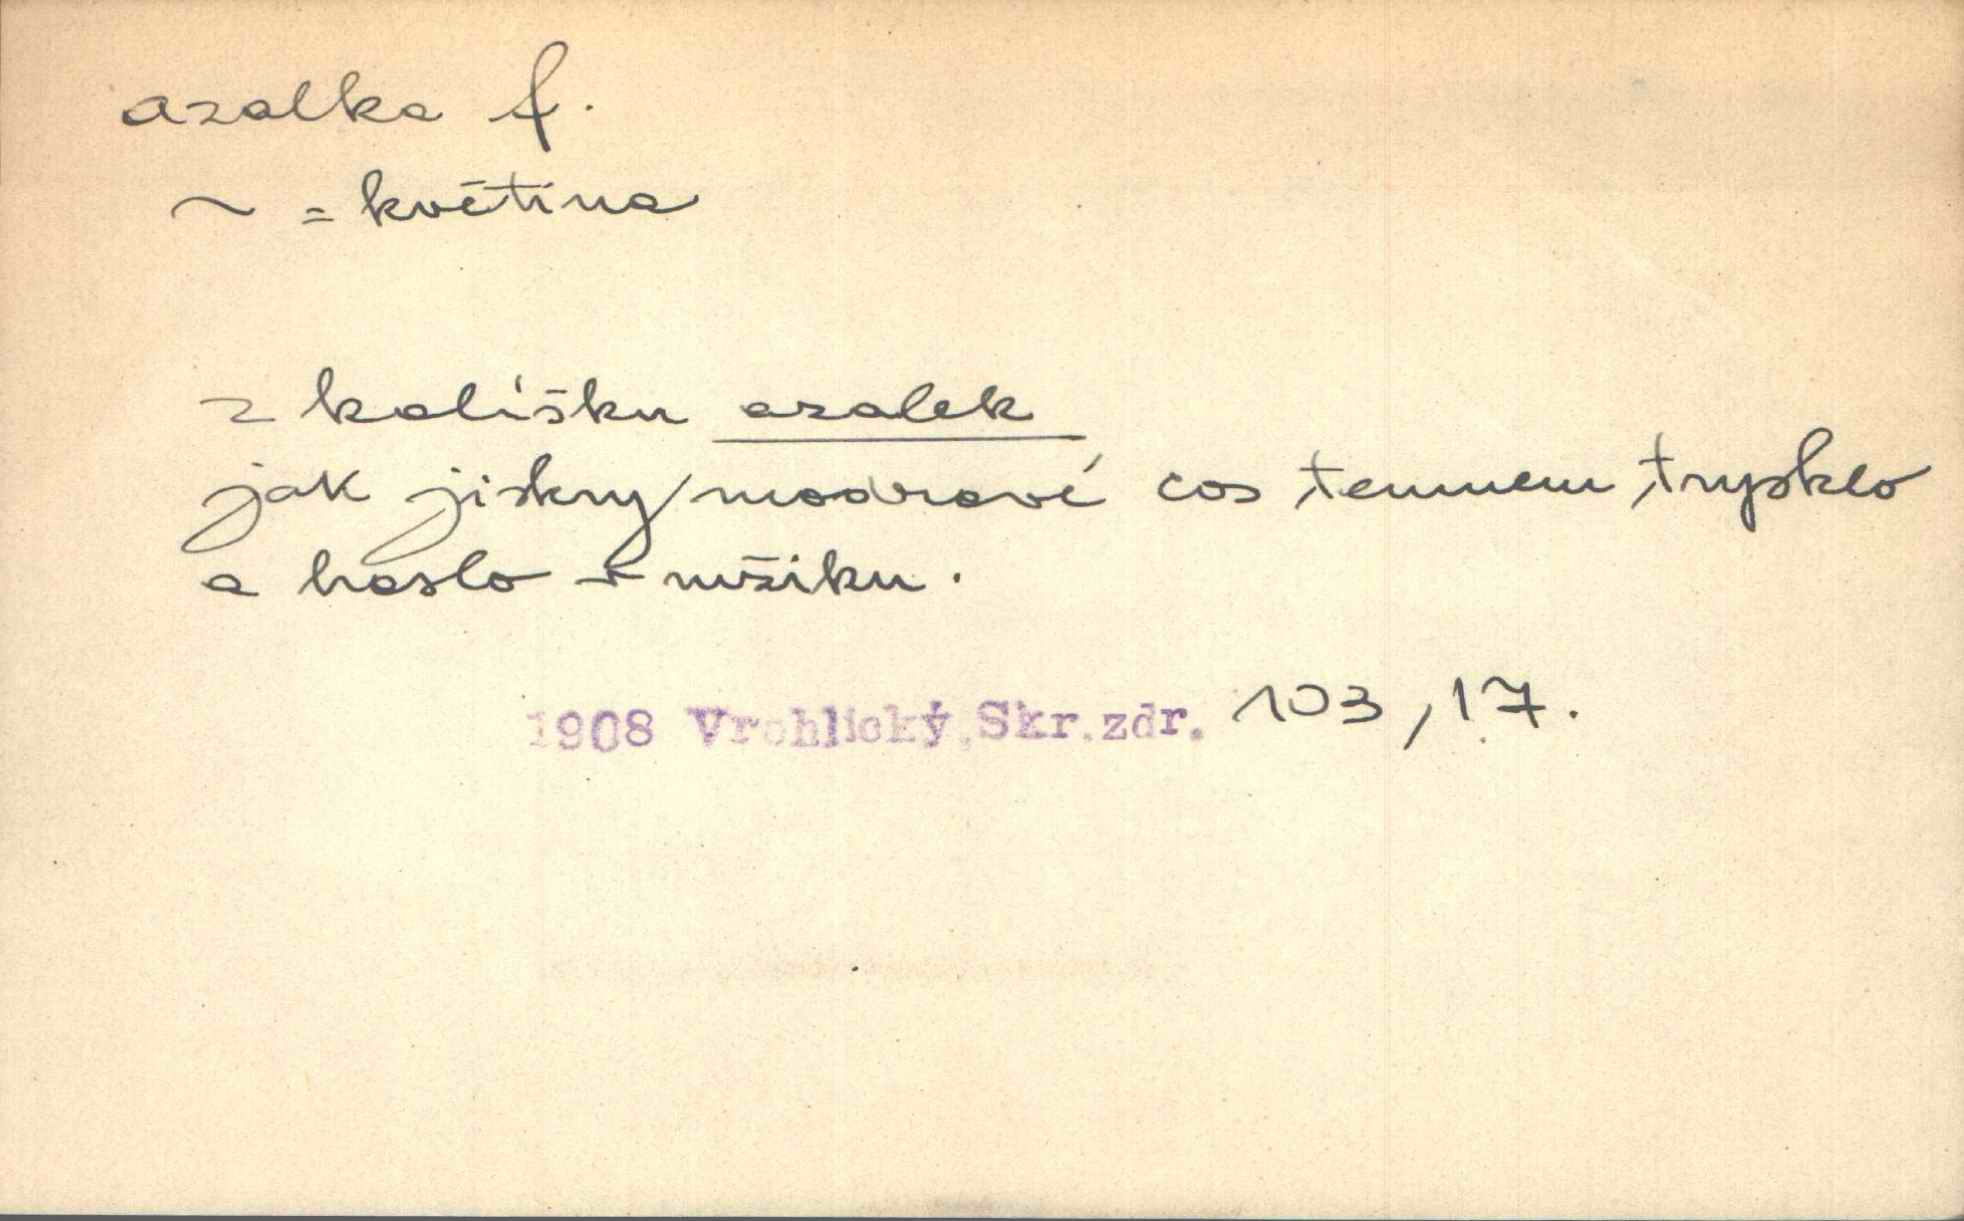 azalka f.
~ = květina
z kalíšku azalek
jak jiskry modravé cos temnem trysklo
a haslo v mžiku.
1908 Vrchlický, Skr.zdr. 103,17.